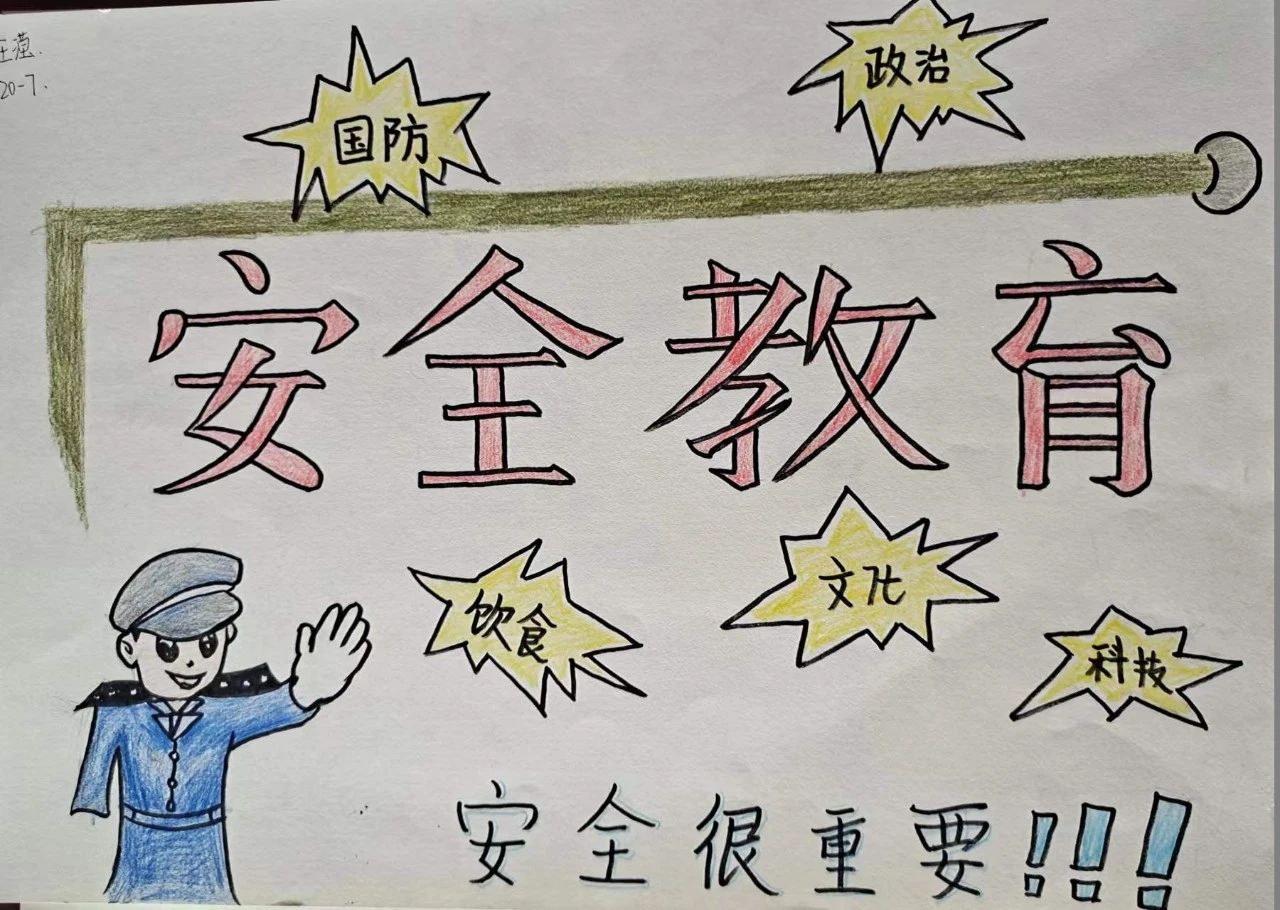 20-7.
国防
政治
安全教育
饮食
文化
科技
安全很重要!!!